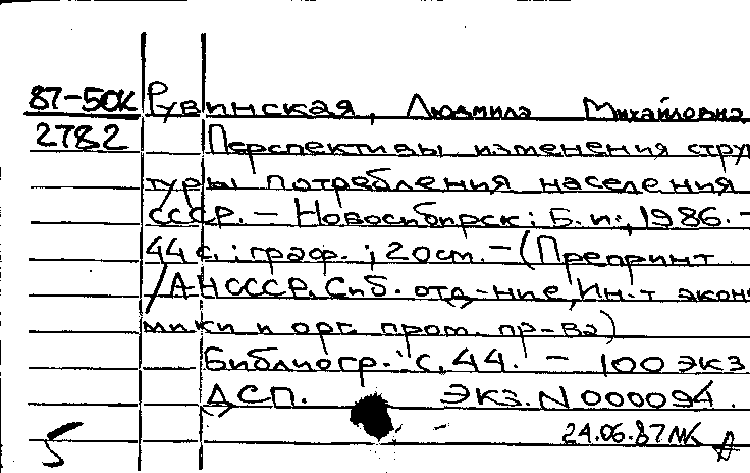 87-50К Рувинская, Людмила Михайловна
2782 Перспективы изменения струк
туры потребления населения
СССР. — Новосибирск: Б.и., 1986. —
44 с.: граф.; 20 см. — (Препринт
/АН СССР, Сиб. отд-ние, Ин-т эконо
мики и орг. пром. пр-ва)
Библиогр.: с. 44. — 100 экз
ДСП. Экз. N 000094.
24.06.87 МК
5